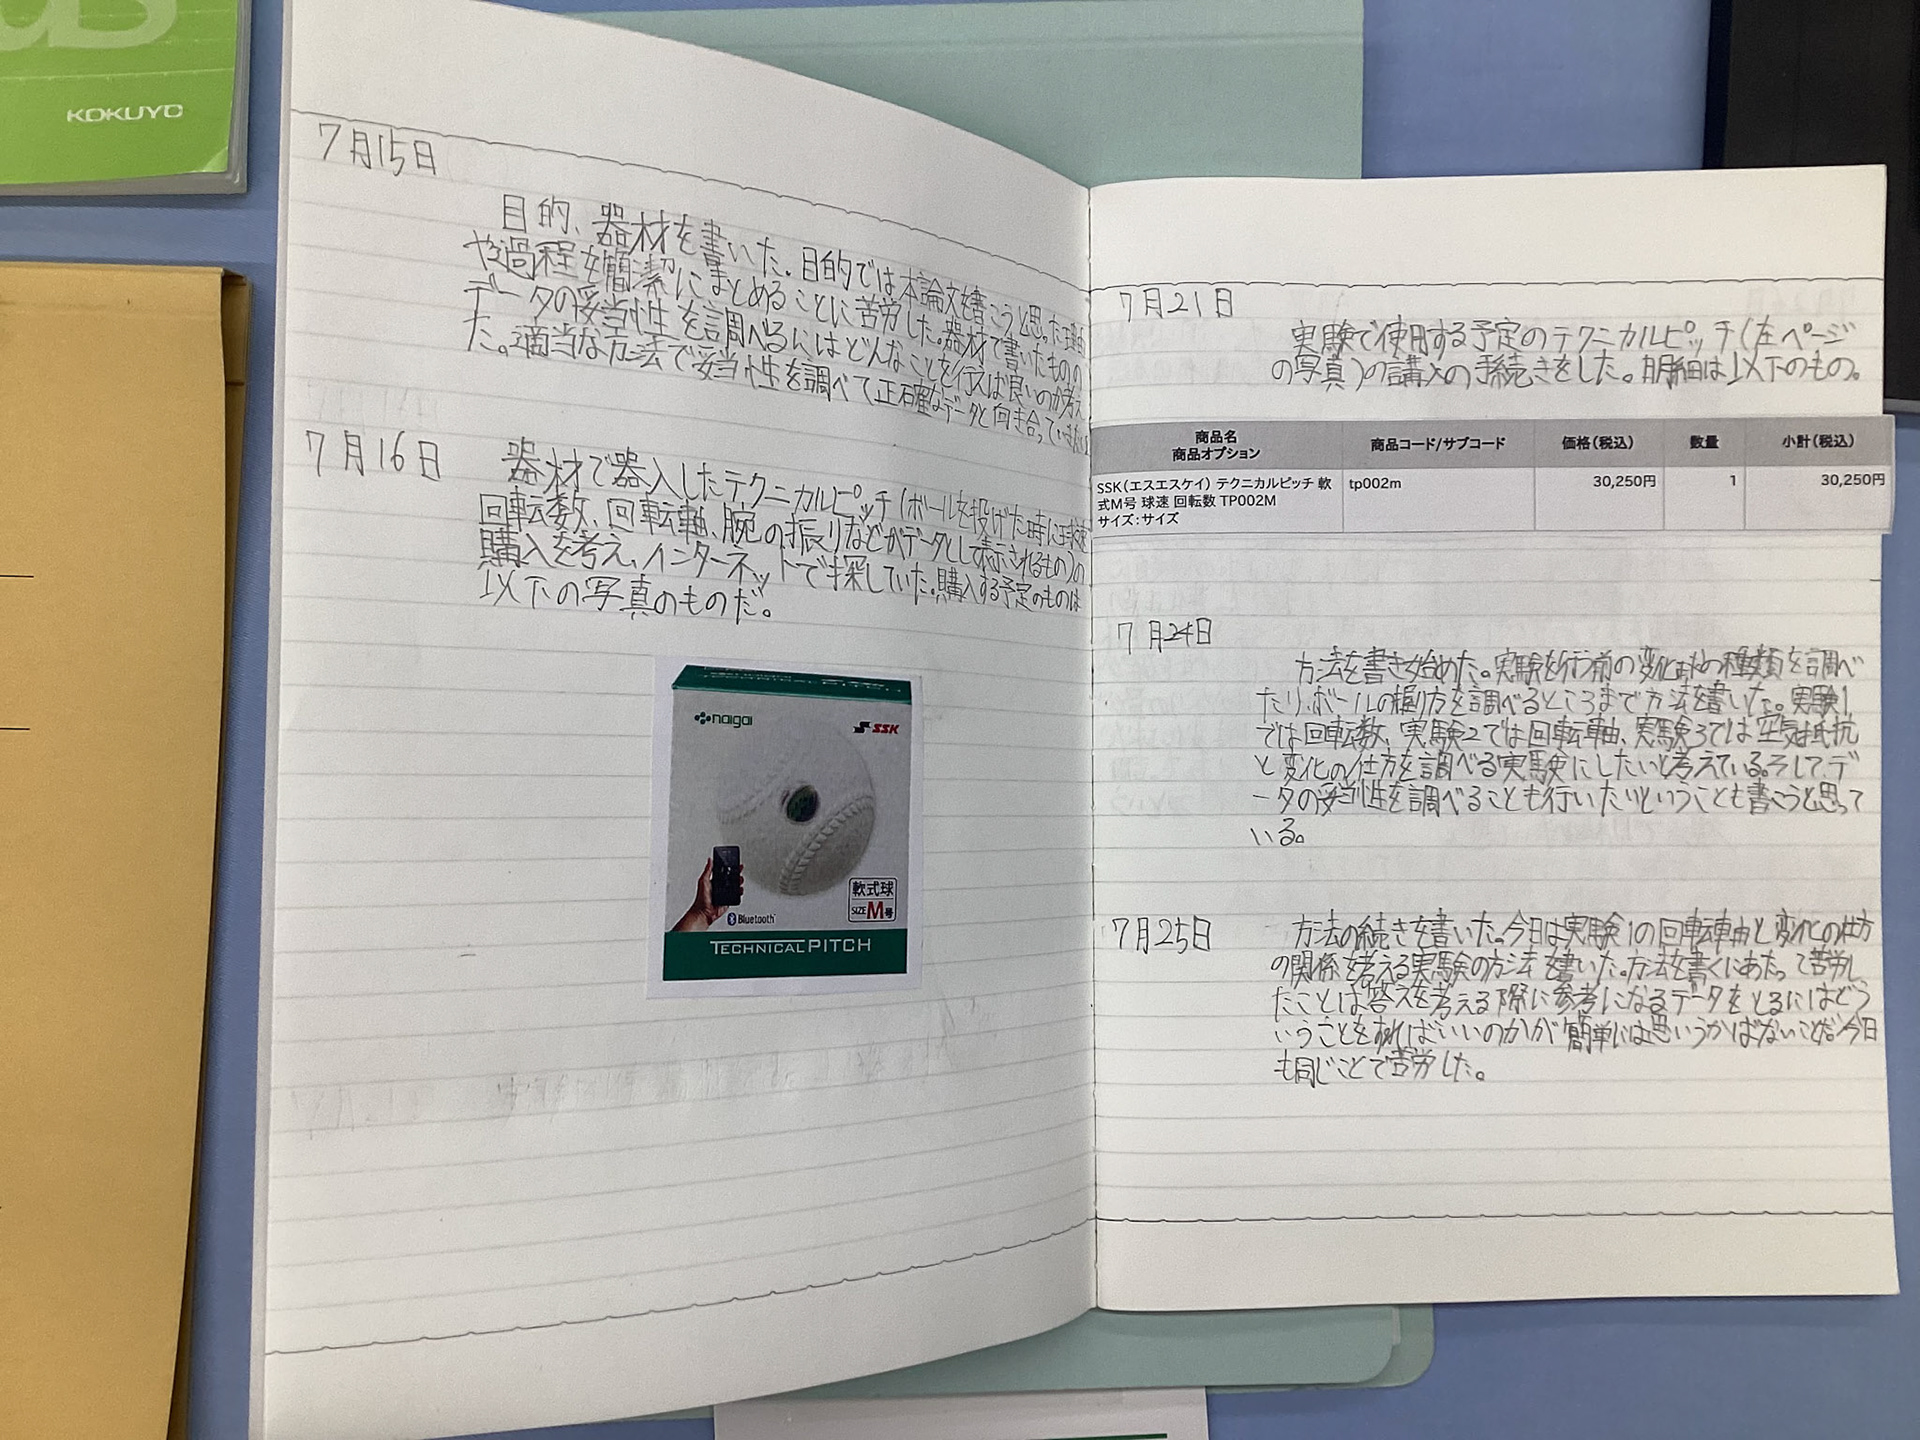 KOKUYO
7月15日
目的、器材を書いた。目的では本論文を書こうと思った理由
や過程を簡潔にまとめることに苦労した。器材で書いたものの
データの妥当性を調べるにはどんなことを行えば良いのか考え
た。適当な方法で妥当性を調べて正確なデータと向き合っていきたい
7月16日
器材で器入したテクニカルピッチ(ボールを投げた時に球速
回転数、回転軸、腕の振りなどがデータとして表示されるもの)の
購入を考え、インターネットで探していた。購入する予定のものは
以下の写真のものだ。
naigai
SSK
軟式球
SIZE M号
Bluetooth
TECHNICALPITCH
7月21日
実験で使用する予定のテクニカルピッチ(左ページ
の写真)の購入の手続きをした。明細は以下のもの。
商品名 商品コード/サブコード 価格(税込) 数量 小計(税込)
商品オプション
SSK(エスエスケイ) テクニカルピッチ 軟 tp002m 30,250円 1 30,250円
式M号 球速 回転数 TP002M
サイズ:サイズ
7月24日
方法を書き始めた。実験を行う前の変化球の種類を調べ
たり、ボールの握り方を調べるところまで方法を書いた。実験1
では回転数、実験2では回転軸、実験3では空気抵抗
と変化の仕方を調べる実験にしたいと考えている。そして、デ
ータの妥当性を調べることも行いたいということも書こうと思って
いる。
7月25日
方法の続きを書いた。今日は実験1の回転軸と変化の仕方
の関係を考える実験の方法を書いた。方法を書くにあたって苦労し
たことは答えを考える際に参考になるデータをとるにはどう
いうことをすればいいのかが簡単には思いうかばないことだ。今日
も同じことで苦労した。